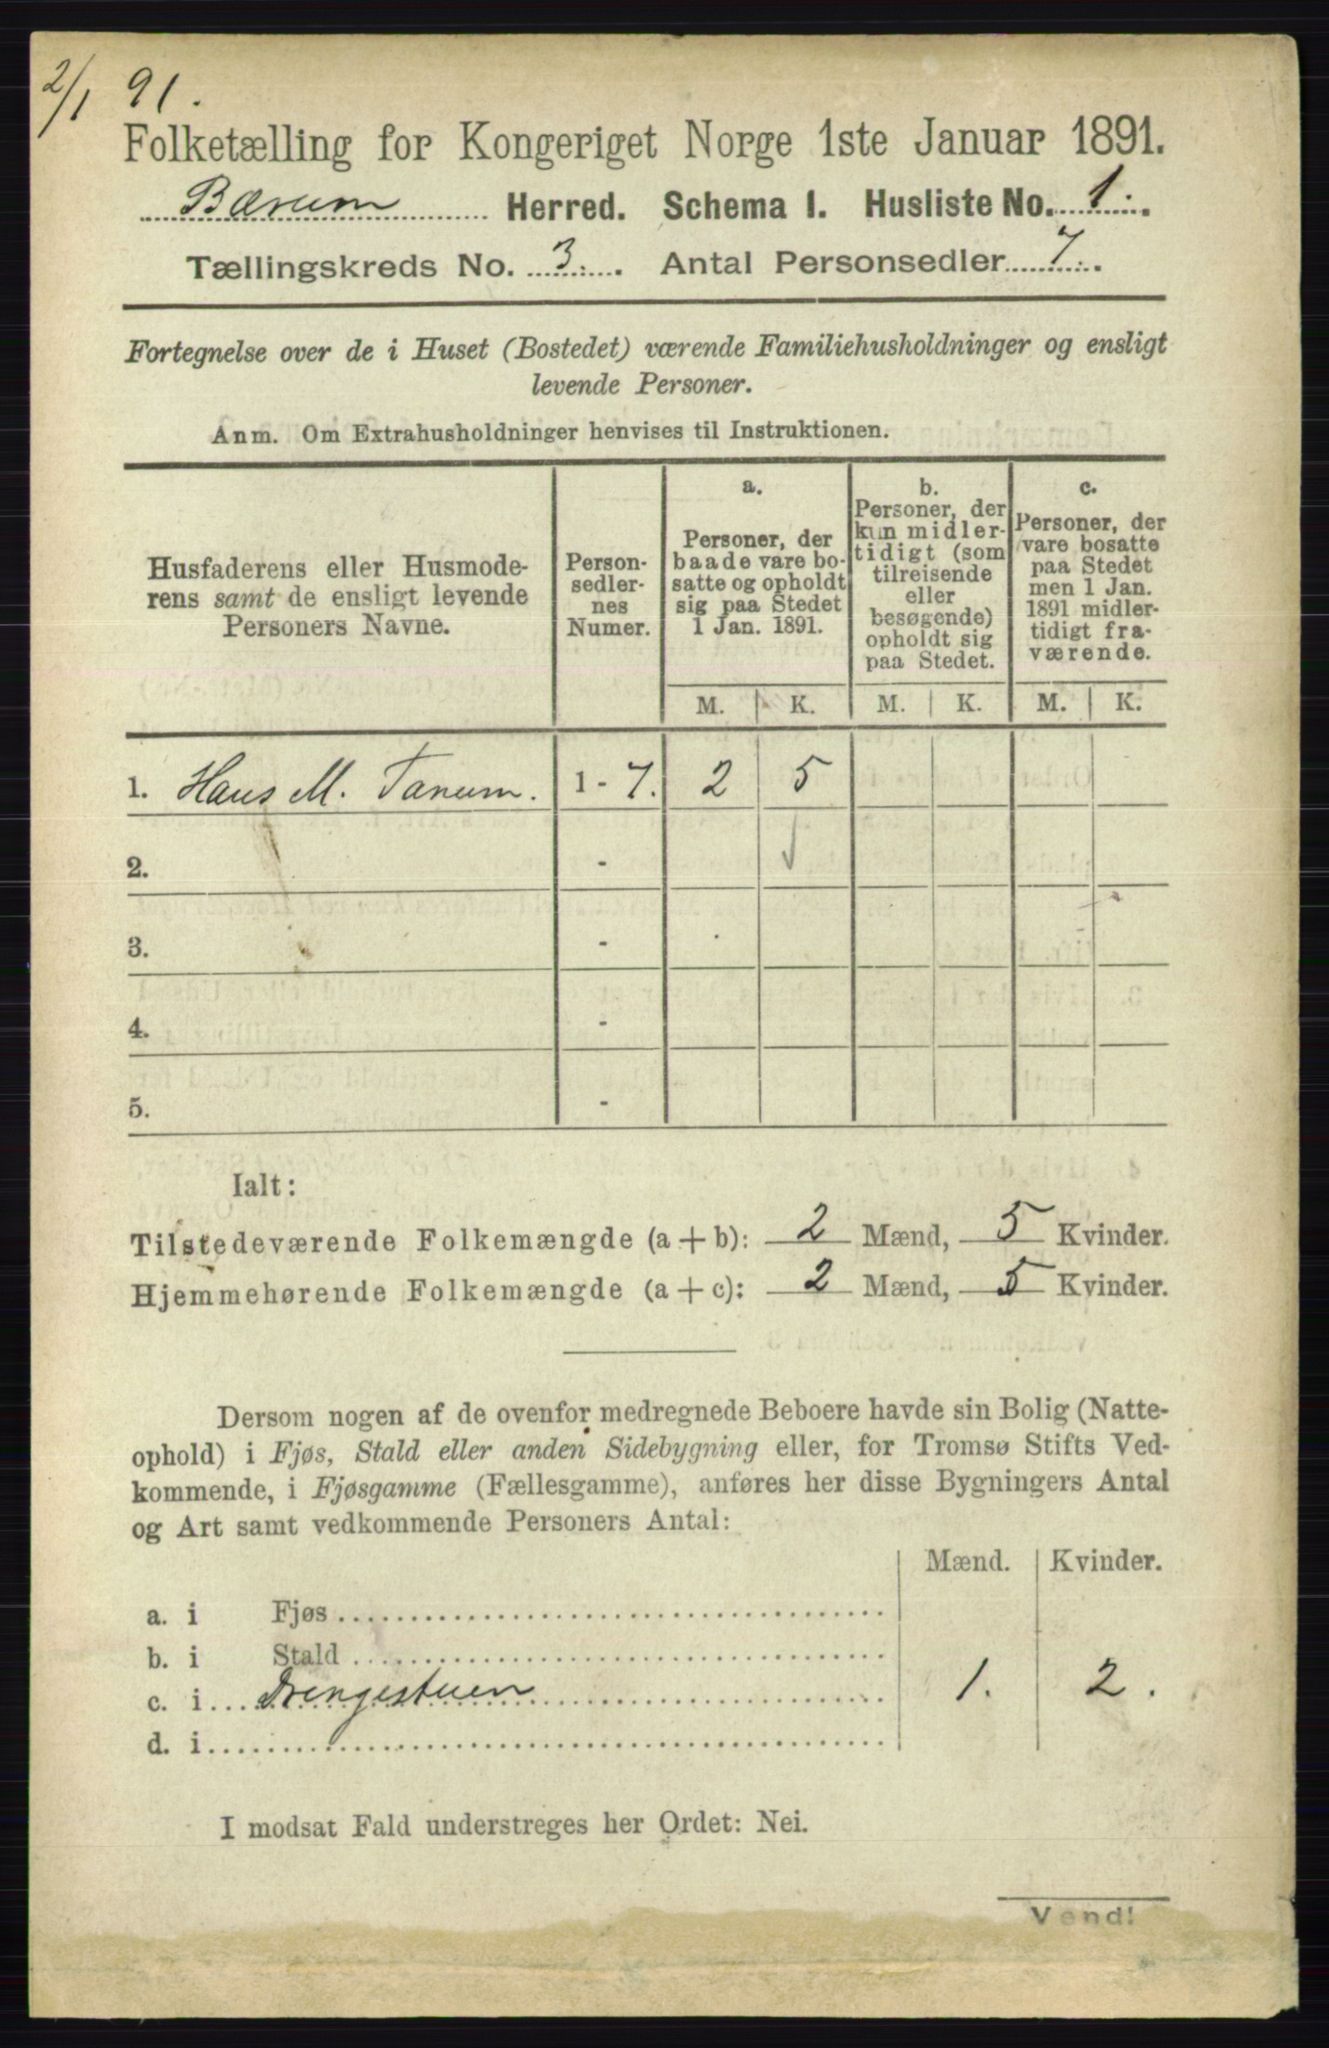 2/1 91.
Folketælling for Kongeriget Norge 1ste Januar 1891.
Bærum Herred. Schema I. Husliste No. 1.
Tællingskreds No. 3. Antal Personsedler 7.
Fortegnelse over de i Huset (Bostedet) værende Familiehusholdninger og ensligt
levende Personer.
Anm. Om Extrahusholdninger henvises til Instruktionen.
Husfaderens eller Husmode-
rens samt de ensligt levende
Personers Navne.
Person-
sedler-
nes
Numer.
a.
Personer, der
baade vare bo-
satte og opholdt
sig paa Stedet
1 Jan. 1891.
b.
Personer, der
kun midler-
tidigt (som
tilreisende
eller
besøgende)
opholdt sig
paa Stedet.
c.
Personer, der
vare bosatte
paa Stedet
men 1 Jan.
1891 midler-
tidigt fra-
værende.
M. K. M. K. M. K.
1. Hans M. Tanum. 1 - 7. 2 5
2. -
3. -
4. -
5. -
Ialt:
Tilstedeværende Folkemængde (a + b): 2 Mænd, 5 Kvinder.
Hjemmehørende Folkemængde (a + c): 2 Mænd, 5 Kvinder.
Dersom nogen af de ovenfor medregnede Beboere havde sin Bolig (Natte-
ophold) i Fjøs, Stald eller anden Sidebygning eller, for Tromsø Stifts Ved-
kommende, i Fjøsgamme (Fællesgamme), anføres her disse Bygningers Antal
og Art samt vedkommende Personers Antal:
Mænd. Kvinder.
a. i Fjøs
b. i Stald
c. i Drengestuen 1. 2.
d. i
I modsat Fald understreges her Ordet: Nei.
Vend!